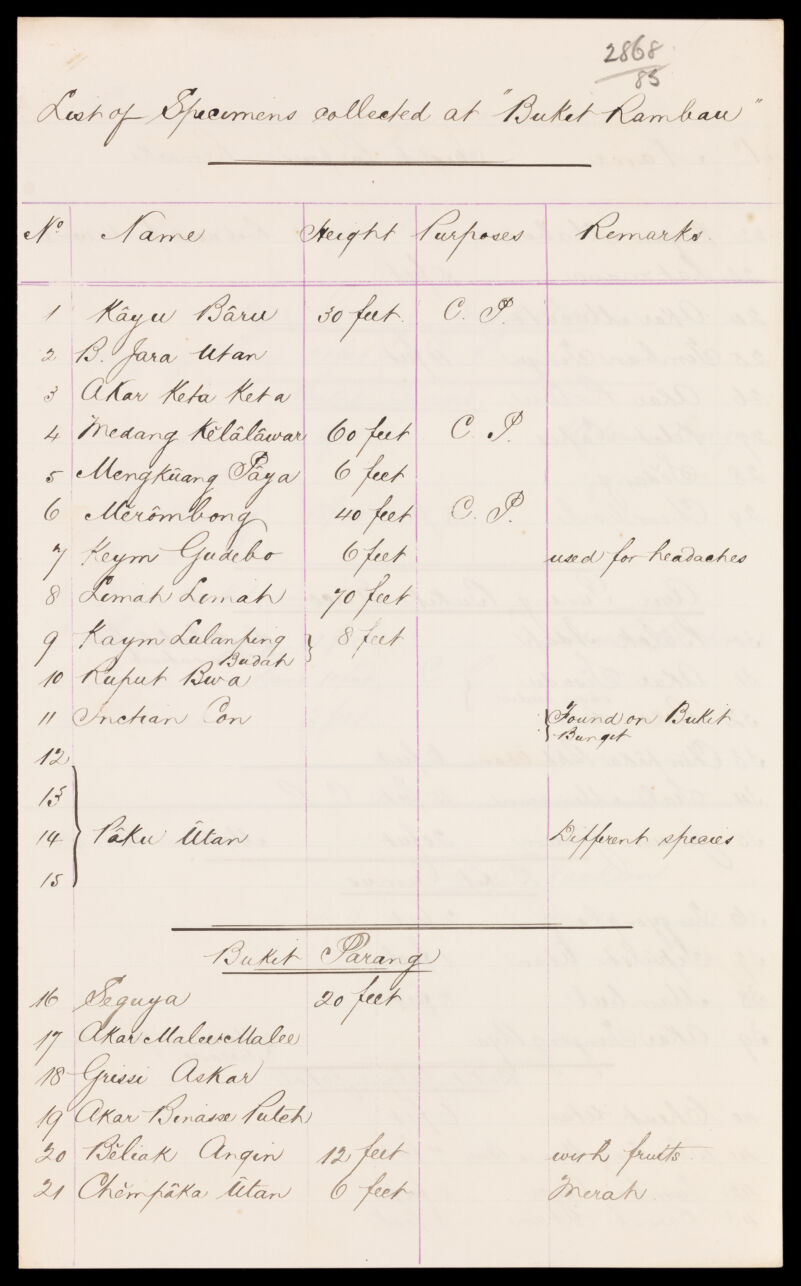 2868/85
List of Specimens collected at "Bukit Rambau"
No Name Height Purposes Remarks.
1 Kâyu Bâru 30 feet. C. P.
2 B. Jara Utan
3 Akar Keta Keta
4 Medang Kĕlâlâwar 60 feet C. P.
5 Mengkûang Pâya 6 feet
6 Mĕrômbong 40 feet C. P.
7 Keym Gudebo 6 feet used for headaches
8 Lemah Lemah 70 feet
9 Kaym Lulanping } 8 feet
Budah
10 Ruput Bwa
11 Inchan Con { Found on Bukit
Bunget
12
13
14 Pâku Ûtan Different species
15
Bukit Parang
16 Seguya 20 feet
17 Akar Malee Malee
18 Grissi Askar
19 Akar Binasse Puteh
20 Bĕliak Angin 12 feet with fruits.
21 Chĕmpâka Ûtan 6 feet Merah.